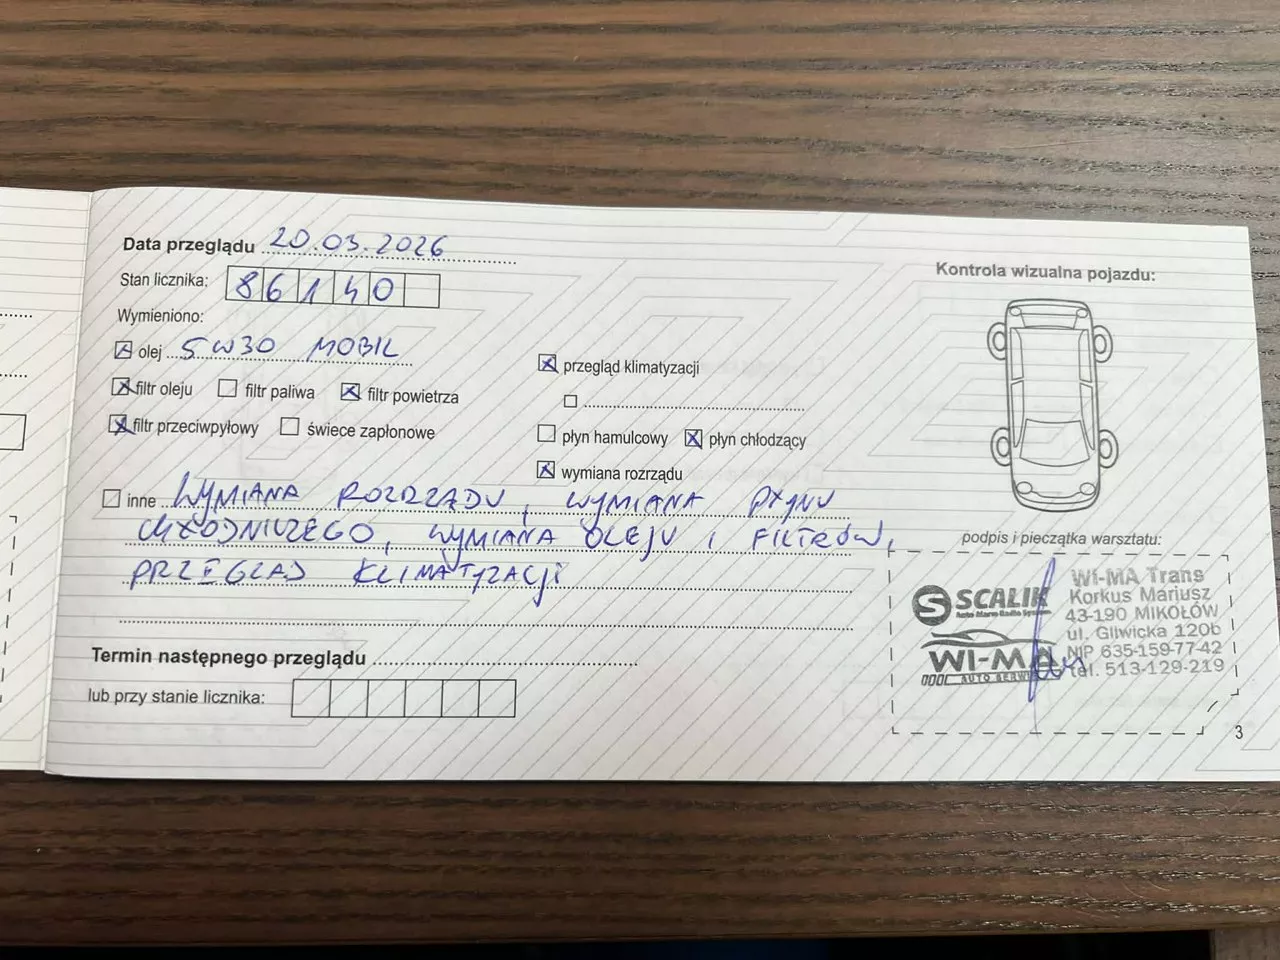 Data przeglądu 20.03.2026
Stan licznika: 86140
Wymieniono:
olej 5W30 MOBIL
filtr oleju filtr paliwa filtr powietrza
filtr przeciwpyłowy świece zapłonowe
przegląd klimatyzacji
płyn hamulcowy płyn chłodzący
wymiana rozrządu
inne WYMIANA ROZRZĄDU, WYMIANA PŁYNU
CHŁODNICZEGO, WYMIANA OLEJU I FILTRÓW,
PRZEGLĄD KLIMATYZACJI
Termin następnego przeglądu
lub przy stanie licznika:
Kontrola wizualna pojazdu:
podpis i pieczątka warsztatu:
SCALIK
WI-MA
AUTO SERWIS
WI-MA Trans
Korkus Mariusz
43-190 MIKOŁÓW
ul. Gliwicka 120b
NIP 635-159-77-42
tel. 513-129-219
3